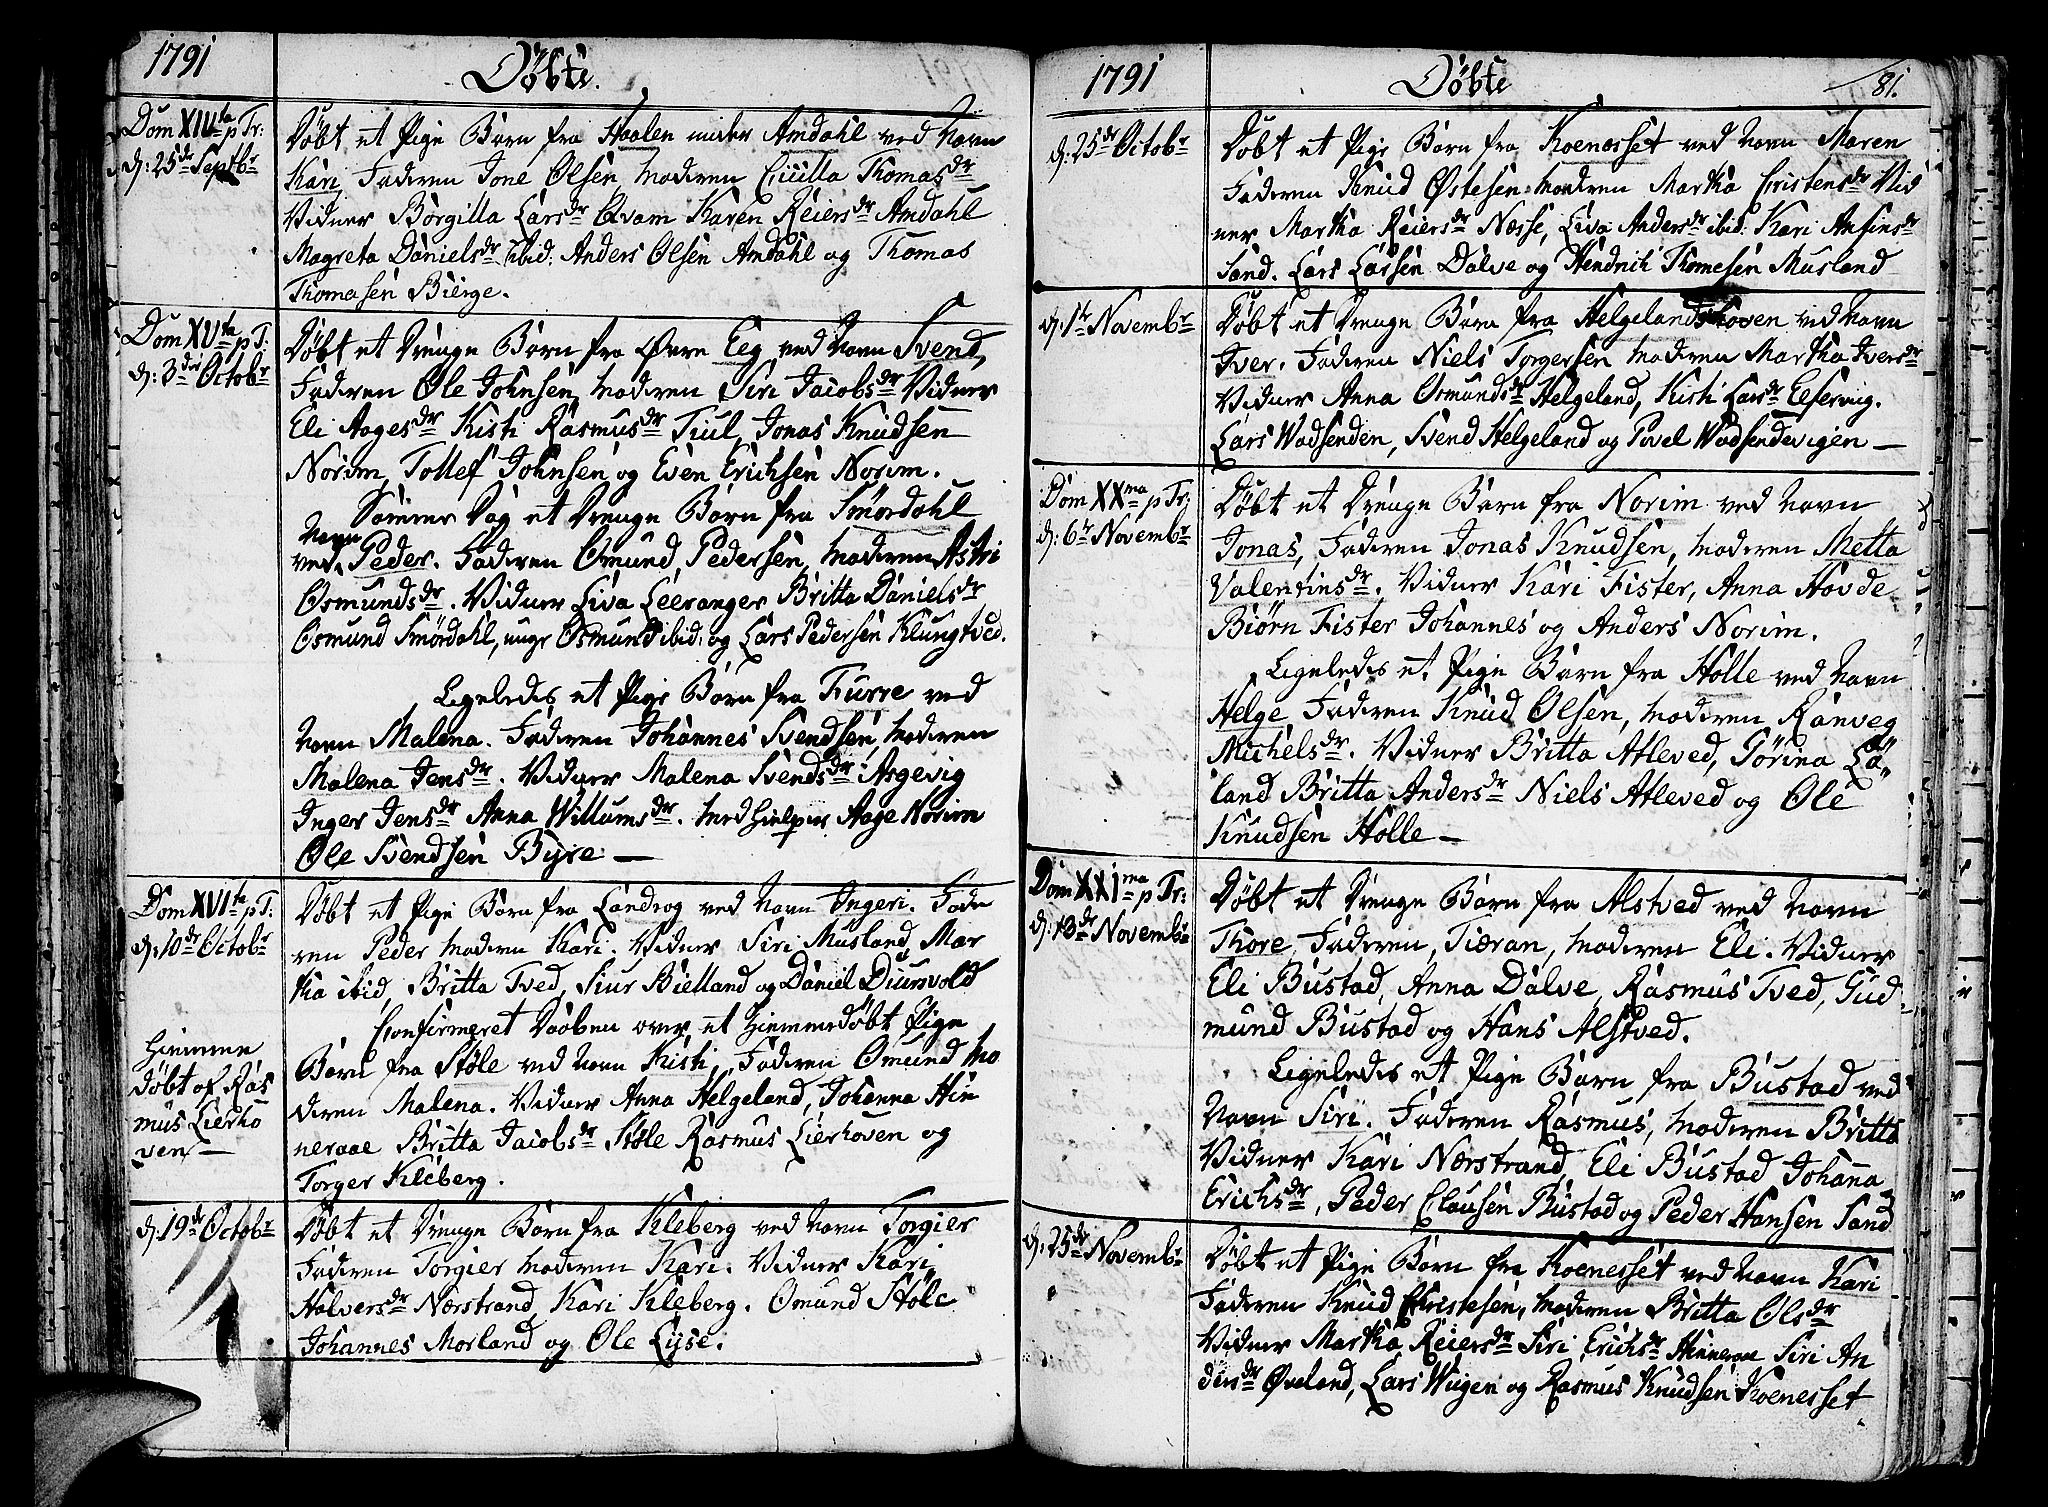 1791
Döbte.
Dom XIV ta p Tr:
d: 25de Septbr
Döbt et Pige Barn fra Haalen under Amdahl ved Navn
Kari, Faderen Jone Olsen, Moderen Cicilla Thomasdr
Vidner Børgilla Larsdr Qvam Karen Reiersdr Amdahl
Magreta Danielsdr ibid: Anders Olsen Amdahl og Thomas
Thomasen Bierge.
Dom XV ta p T:
d: 3die Octobr
Döbt et Drenge Barn fra Øvre Eeg ved Navn Svend,
Faderen Ole Johnsen, Moderen Siri Jacobsdr Vidner
Eli Aagesdr Kisti Rasmusdr Tiul, Jonas Knudsen
Norim, Tollef Johnsen og Even Erichsen Norim.
Samme Dag et Drenge Barn fra Smördahl
Navn
ved Peder. Faderen Omund Pedersen, Moderen Astri
Osmundsdr. Vidner Liva Leeranger Britta Danielsdr
Osmund Smördahl, unge Osmund ibid: og Lars Pedersen Klungtved.
Ligeledes et Pige Barn fra Furre ved
Navn Malena. Faderen Johannes Svendsen, Moderen
Malena Jensdr. Vidner Malena Svendsdr Asgevig
Inger Jensdr Anna Willumsdr. Medhielper Aage Norim
Ole Svendsen Byre —
Dom XVI ta p T:
d: 10de Octobr
Döbt et Pige Barn fra Landrog ved Navn Ingeri. Fade
ren Peder Moderen Kari. Vidner Siri Musland, Mar
tha ibid, Britta Tved, Siur Bielland og Daniel Diursvold
Confirmeret Daaben over et Hiemmedöbt Pige
Barn fra Støle ved Navn Kisti, Faderen Omund Mo
deren Malena. Vidner Anna Helgeland, Johanna Hin
neraae Britta Jacobsdr Støle Rasmus Lierhoven og
Torger Kleberg.
Hiemme
döbt af Ras
mus Lierho
ven —
d: 19de Octobr
Döbt et Drenge Barn fra Kleberg ved Navn Torgier
Faderen Torgier Moderen Kari. Vidner Kari
Halversdr Nærstrand, Kari Kleberg. Omund Støle
Johannes Morland og Ole Lyse.
1791
Döbte
81.
d: 25de Octobr
Döbt et Pige Barn fra Koenæsset ved Navn Maren
Faderen Knud Østesen Moderen Martha Cristensdr Vid
ner Martha Reiersdr Næsse, Liva Andersdr ibid: Kari Anfinsdr
Sand. Lars Larsen Dalve og Hendrich Thomesen Musland
d: 1te Novembr
Döbt et Drenge Barn fra Helgelandshoven ved Navn
Iver. Faderen Niels Torgersen Moderen Martha Iversdr
Vidner Anna Osmundsdr Helgeland, Kisti Larsdr
Lars Wadsenden, Svend Helgeland og Povel Wadsendevigen —
Dom XX ma p Tr:
d: 6te Novembr
Döbt et Drenge Barn fra Norim ved Navn
Jonas, Faderen Jonas Knudsen, Moderen Metta
Valentinsdr. Vidner Kari Fister, Anna Hovde
Biørn Fister Johannes og Anders Norim.
Ligeledes et Pige Barn fra Holle ved Navn
Helge, Faderen Knud Olsen, Moderen Ranveg
Michelsdr. Vidner Britta Atleved, Gørina La„
land Britta Andersdr Niels Atleved og Ole
Knudsen Holle —
Dom XXI ma p Tr:
d: 13de Novembr
Döbt et Drenge Barn fra Alstved ved Navn
Thore, Faderen, Tiæran, Moderen Eli. Vidner
Eli Bustad, Anna Dalve, Rasmus Tved, Gud
mund Bustad og Hans Alstved.
Ligeledes et Pige Barn fra Bustad ved
Navn Siri. Faderen Rasmus, Moderen Britta
Vidner Kari Nærstrand, Eli Bustad Johana
Erichsdr, Peder Clausen Bustad og Peder Hansen Sand
d: 25de Novembr
Döbt et Pige Barn fra Koenesset ved Navn Kari
Faderen Knud Christesen, Moderen Britta Olsdr
Vidner Martha Reiersdr Siri Erichsdr Hinneraae Siri An
densdr Øveland, Lars Wiigen og Rasmus Knudsen Koenesset